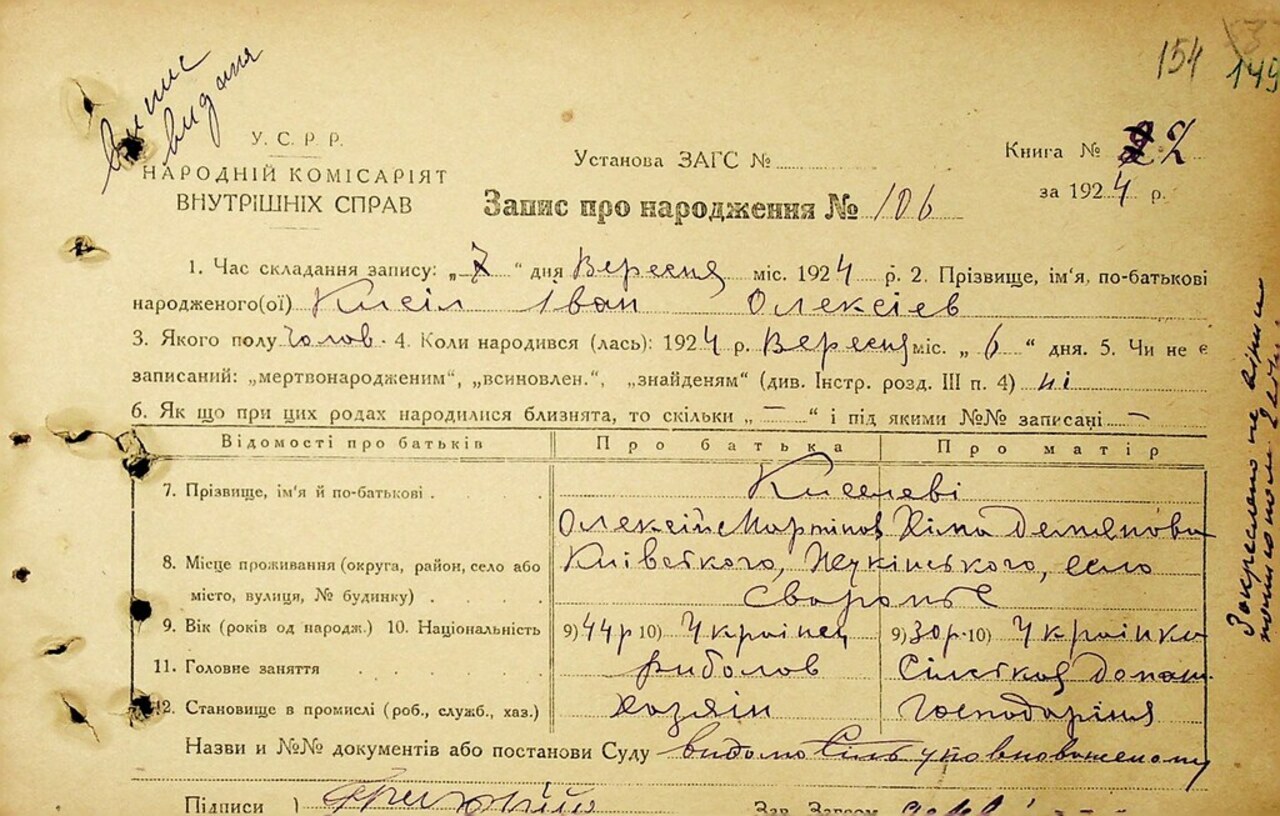 154
149
Випис
видана
У. С. Р. Р.
НАРОДНІЙ КОМІСАРІЯТ
ВНУТРІШНІХ СПРАВ
Установа ЗАГС №
Книга № 2
за 1924 р.
Запис про народження № 106
1. Час складання запису: „7“ дня Вересня міс. 1924 р. 2. Прізвище, ім'я, по-батькові
народженого(ої) Кисіл Іван Олексієв
3. Якого полу чолов. 4. Коли народився (лась): 1924 р. Вересня міс. „6“ дня. 5. Чи не є
записаний: „мертвонародженим“, „всиновлен.“, „знайденям“ (див. Інстр. розд. III п. 4) ні
6. Як що при цих родах народилися близнята, то скільки „—“ і під якими №№ записані —
Відомості про батьків Про батька Про матір
7. Прізвище, ім'я й по-батькові . Киселеві
Олексій Мартінов Демянова
8. Місце проживання (округа, район, село або Київского, село
місто, вулиця, № будинку) . . . . Сваромьє
9. Вік (років од народж.) 10. Національність 9) 44р 10) Українец 9) 30р. 10) Українка
11. Головне заняття . . . . риболов
12. Становище в промислі (роб., служб., хаз.) хозяін Господаріня
Назви и №№ документів або постанови Суду
Підписи } Зав. Загсом
Закреслено не